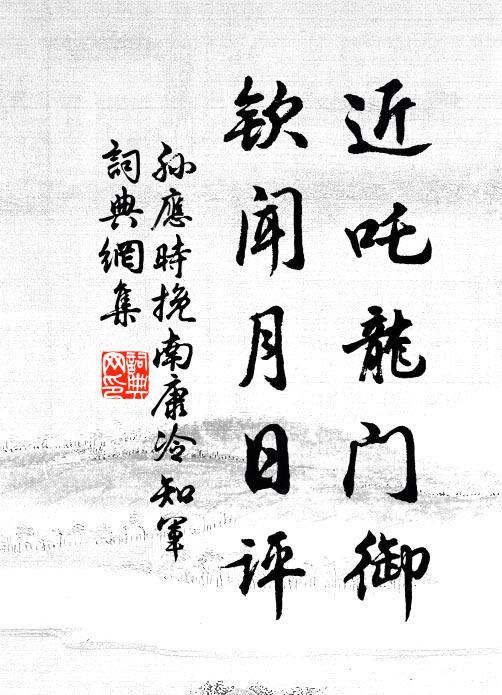 近吒龍门御
钦闻月日評
孙應時挽南康冷知軍
詞典網集
詞典
网印